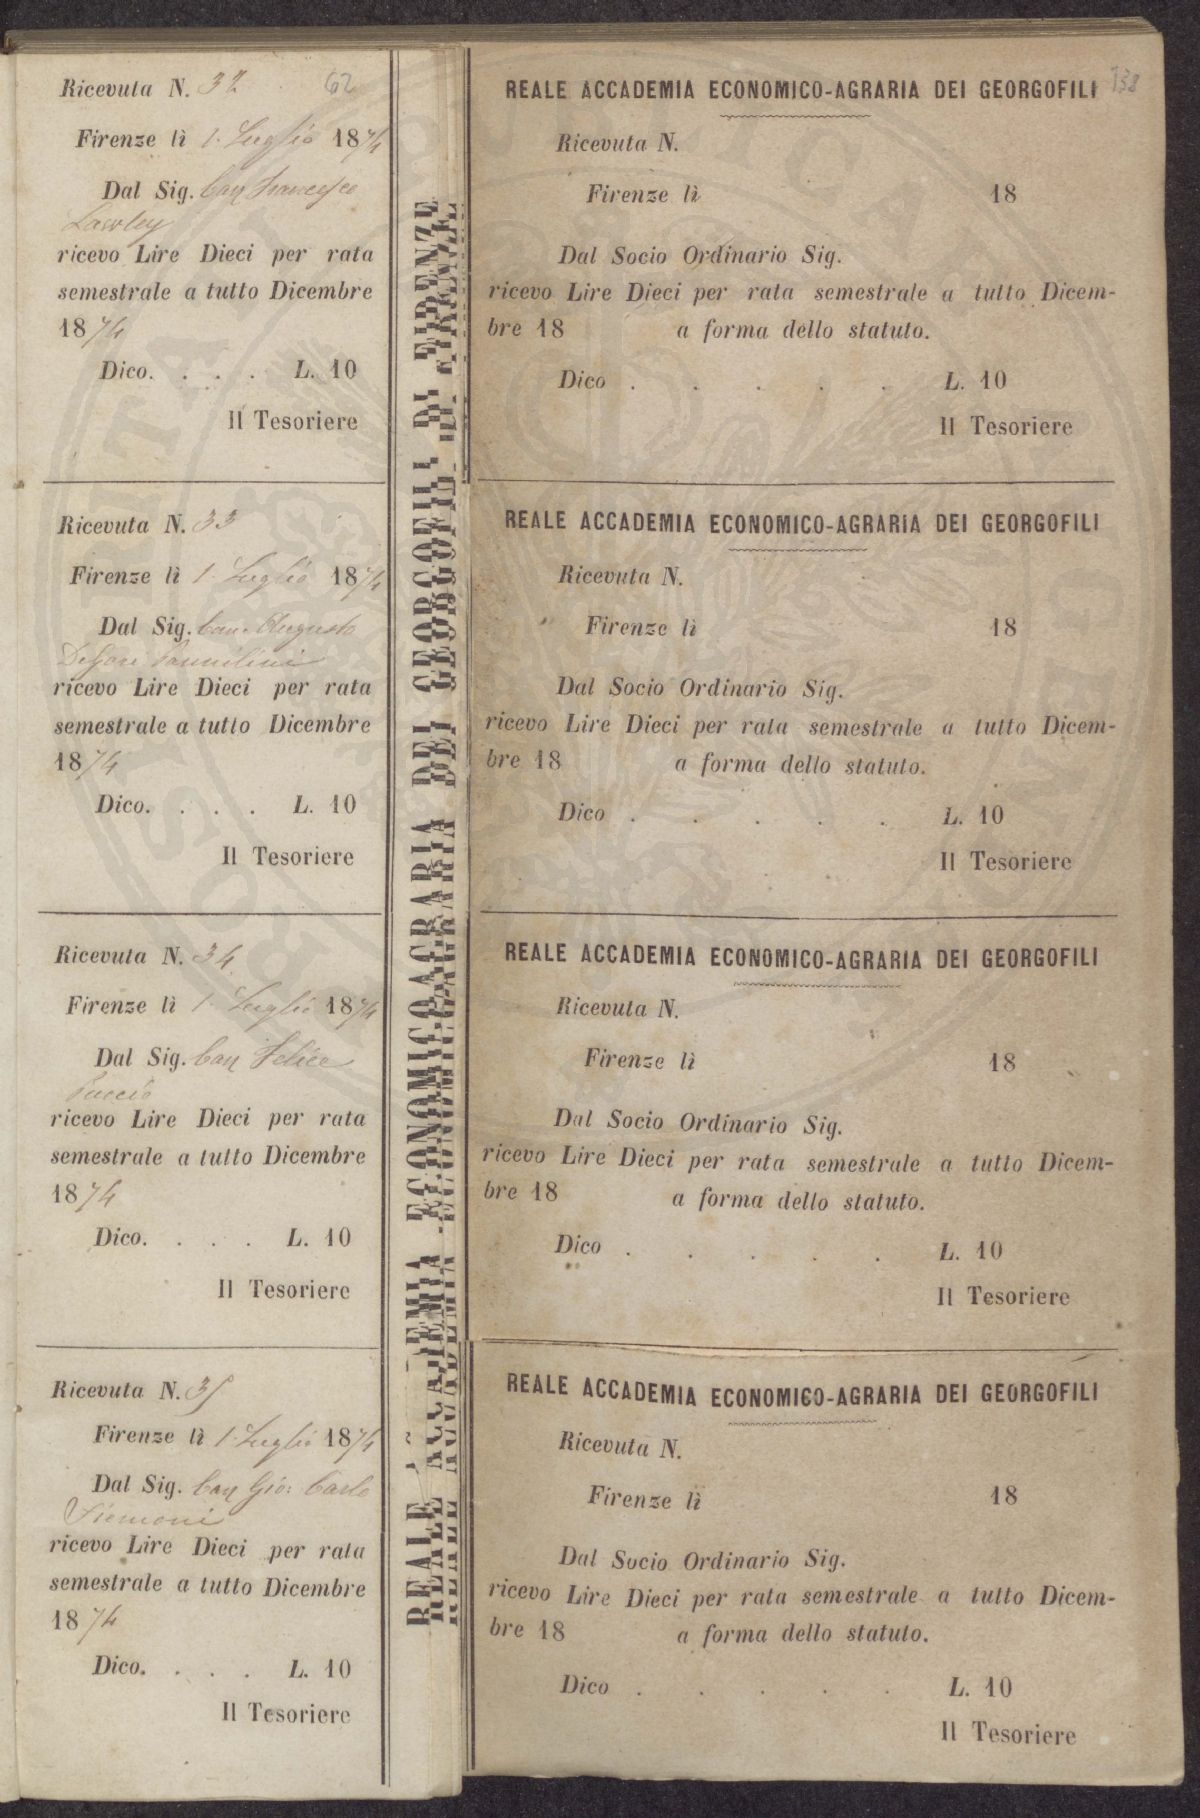 Ricevuta N. 32 62
Firenze lì 1. Luglio 1874
Dal Sig. Cav Francesco
Lawley
ricevo Lire Dieci per rata
semestrale a tutto Dicembre
1874
Dico. . . . L. 10
Il Tesoriere
Ricevuta N. 33
Firenze lì 1. Luglio 1874
Dal Sig. Cav. Augusto
DeGori Pannilini
ricevo Lire Dieci per rata
semestrale a tutto Dicembre
1874
Dico. . . . L. 10
Il Tesoriere
Ricevuta N. 34
Firenze lì 1. Luglio 1874
Dal Sig. Cav Felice
Puccio
ricevo Lire Dieci per rata
semestrale a tutto Dicembre
1874
Dico. . . . L. 10
Il Tesoriere
Ricevuta N. 35
Firenze lì 1. Luglio 1874
Dal Sig. Cav Gio: Carlo
Siemoni
ricevo Lire Dieci per rata
semestrale a tutto Dicembre
1874
Dico. . . . L. 10
Il Tesoriere
REALE ACCADEMIA ECONOMICO-AGRARIA DEI GEORGOFILI DI FIRENZE
REALE ACCADEMIA ECONOMICO-AGRARIA DEI GEORGOFILI 138
Ricevuta N.
Firenze lì 18
Dal Socio Ordinario Sig.
ricevo Lire Dieci per rata semestrale a tutto Dicem-
bre 18 a forma dello statuto.
Dico . . . . . L. 10
Il Tesoriere
REALE ACCADEMIA ECONOMICO-AGRARIA DEI GEORGOFILI
Ricevuta N.
Firenze lì 18
Dal Socio Ordinario Sig.
ricevo Lire Dieci per rata semestrale a tutto Dicem-
bre 18 a forma dello statuto.
Dico . . . . . L. 10
Il Tesoriere
REALE ACCADEMIA ECONOMICO-AGRARIA DEI GEORGOFILI
Ricevuta N.
Firenze lì 18
Dal Socio Ordinario Sig.
ricevo Lire Dieci per rata semestrale a tutto Dicem-
bre 18 a forma dello statuto.
Dico . . . . . L. 10
Il Tesoriere
REALE ACCADEMIA ECONOMICO-AGRARIA DEI GEORGOFILI
Ricevuta N.
Firenze lì 18
Dal Socio Ordinario Sig.
ricevo Lire Dieci per rata semestrale a tutto Dicem-
bre 18 a forma dello statuto.
Dico . . . . . L. 10
Il Tesoriere